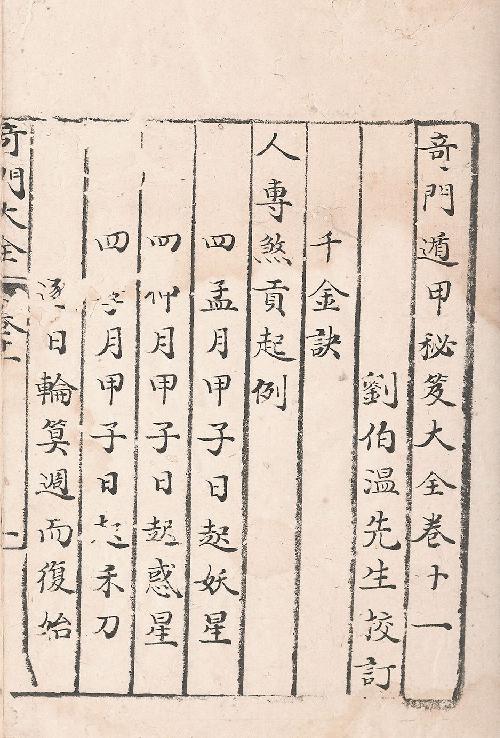 奇門遁甲秘笈大全卷十一
劉伯温先生挍訂
千金訣
人專煞貢起例
四孟月甲子日起妖星
四仲月甲子日起惑星
四季月甲子日起禾刀
逐日輪算週而復始
奇門大全 卷十一 一